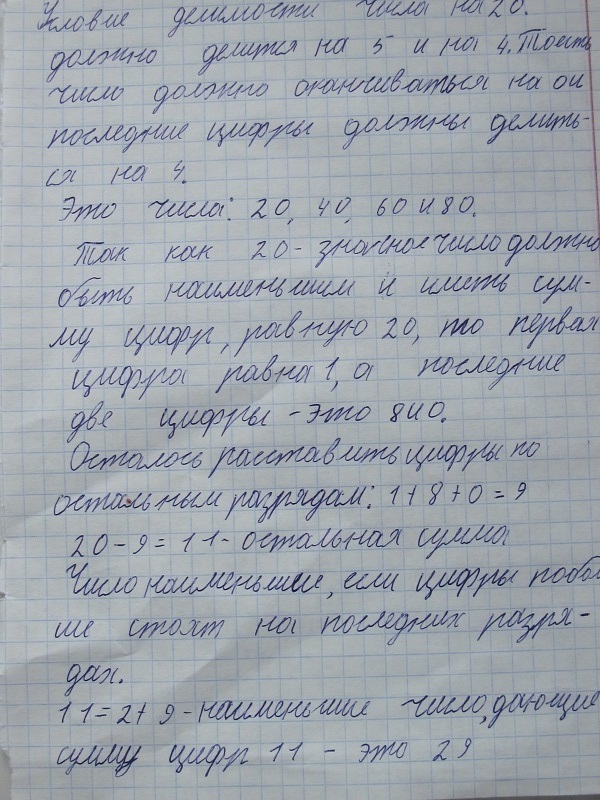 Условие делимости числа на 20.
должно делится на 5 и на 4. Тоесть
число должно оканчиваться на 0 и
последние цифры должны делить-
ся на 4.
Это числа: 20, 40, 60 и 80.
Так как 20-значное число должно
быть наименьшим и иметь сум-
му цифр, равную 20, то первая
цифра равна 1, а последние
две цифры - это 8 и 0.
Осталось расставить цифры по
остальным разрядам: 1+8+0=9
20-9=11- остальная сумма
Число наименьшее, если цифры побол
ше стоят на последних разря-
дах.
11=2+9-наименьшие число, дающие
сумму цифр 11 - это 29